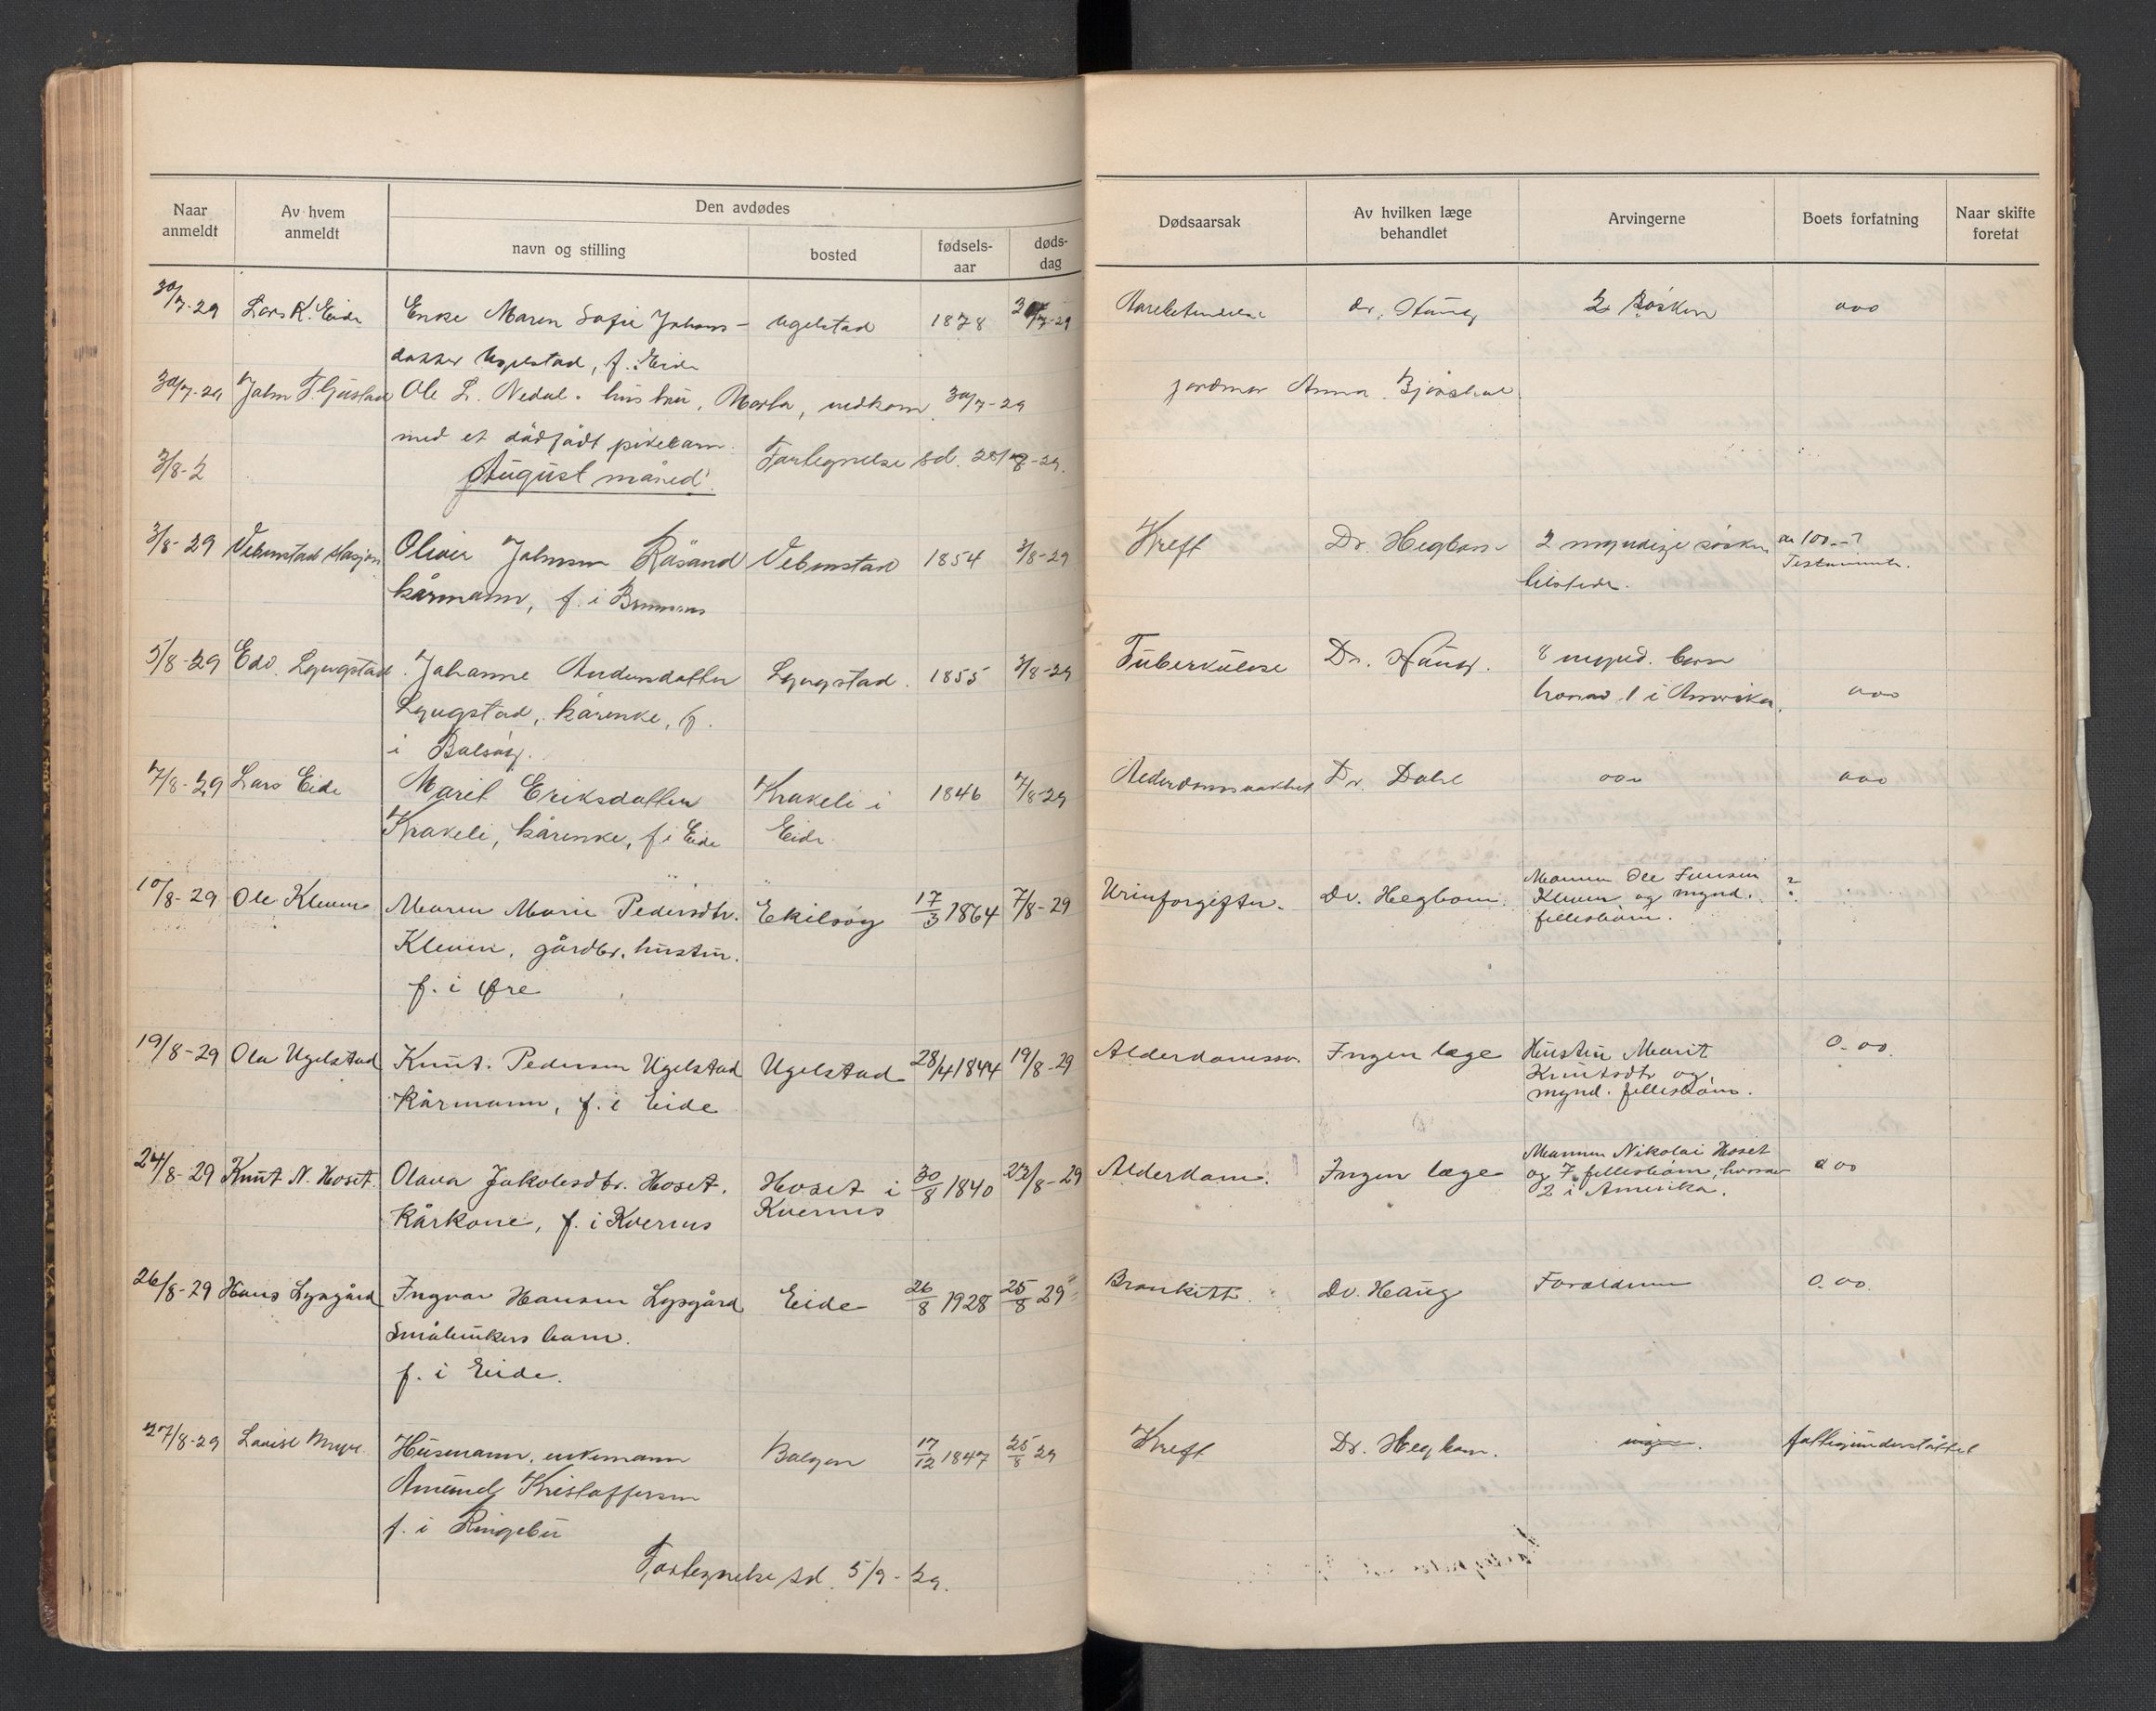 Naar anmeldt
Av hvem anmeldt
Den avdødes
navn og stilling
bosted
fødsels-aar
døds-dag
Dødsaarsak
Av hvilken læge behandlet
Arvingerne
Boets forfatning
Naar skifte foretat
30/7-29 Lars K. Eide Enke Maren Sofie Johans- Ugelstad 1878 /7-29 dr. Haug 2 søsken 000
datter Ugelstad, f. Eide
30/7-29 John Ole L. Nedal. hustru, Marta, nedkom 30/7-29 jordmor Anna
med et dødfødt pikebarn.
3/8-2 August måned. Fortegnelse sd. /8-29.
3/8-29 Vebenstad stasjon Oliver Johnsen Røsand Vebenstad 1854 3/8-29 Kreft Dr. Hegbom 2 myndige søsken 100.-?
kårmann, f. i Bremsnes tilstede. Testamente.
5/8-29 Edv. Lyngstad Johanne Andersdatter Lyngstad. 1855 3/8-29 Tuberkulose Dr. Haug. 8 mynd. barn
Lyngstad, kårenke, f. hvorav 1 i Amerika. 000
i Bolsøy.
7/8-29 Lars Eide Marit Eriksdatter Krakeli i 1846 7/8-29 Alderdomssvakhet Dr. Dahl 000 000
Krakeli, kårenke, f. i Eide Eide.
10/8-29 Ole Kleven Maren Marie Pedersdtr. Ekilsøy 17/3 1864 7/8-29 Urinforgiftn. Dr. Hegbom. Mannen Ole Jensen ?
Kleven og mynd.
Kleven, gårdbr. hustru. fellesbørn.
f. i Øre
19/8-29 Ola Ugelstad Knut Pedersen Ugelstad Ugelstad 28/4 1844 19/8-29 Alderdomssv. Ingen læge Hustru Marit 0.00.
Knutsdtr og
kårmann, f. i Eide mynd. fellesbørn.
24/8-29 Knut N. Hoset. Olava Jakobsdtr. Hoset. Hoset i 30/8 1840 23/8-29 Alderdom. Ingen læge Mannen Nikolai Hoset 0 00
Kvernes og 7 fellesbørn, hvorav
kårkone, f. i Kvernes 2 i Amerika.
26/8-29 Hans Lysgård Ingvar Hansen Lysgård Eide 26/8 1928 25/8 29 Bronkitt. Dr. Haug Forældrene 0.00.
Småbrukers barn.
f. i Eide.
27/8-29 Lovise Myre Husmann, enkemann Bolgen 17/12 1847 25/8 29 Kreft Dr. Hegbom. fattigunderstøttet
Amund Kristoffersen
f. i Ringebu
Fortegnelse sd. 5/9-29.